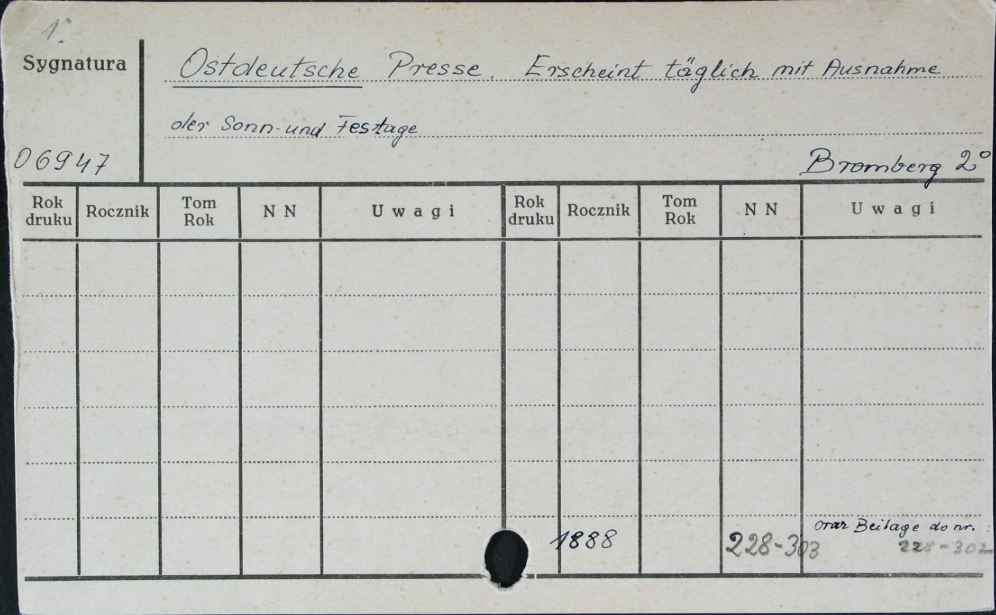 1°
Sygnatura
Ostdeutsche Presse. Erscheint täglich mit Ausnahme
der Sonn- und Festage
06947
Bromberg 2°
Rok druku Rocznik Tom Rok N N Uwagi Rok druku Rocznik Tom Rok N N Uwagi
1888 228-303 oraz Beilage do nr.:
228-302